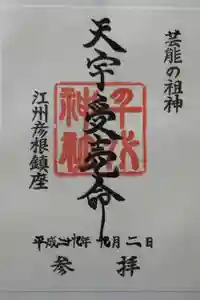 芸能の祖神
天宇受売命
千代
神社
江州彦根鎮座
平成廿九年 九月二日
参拝